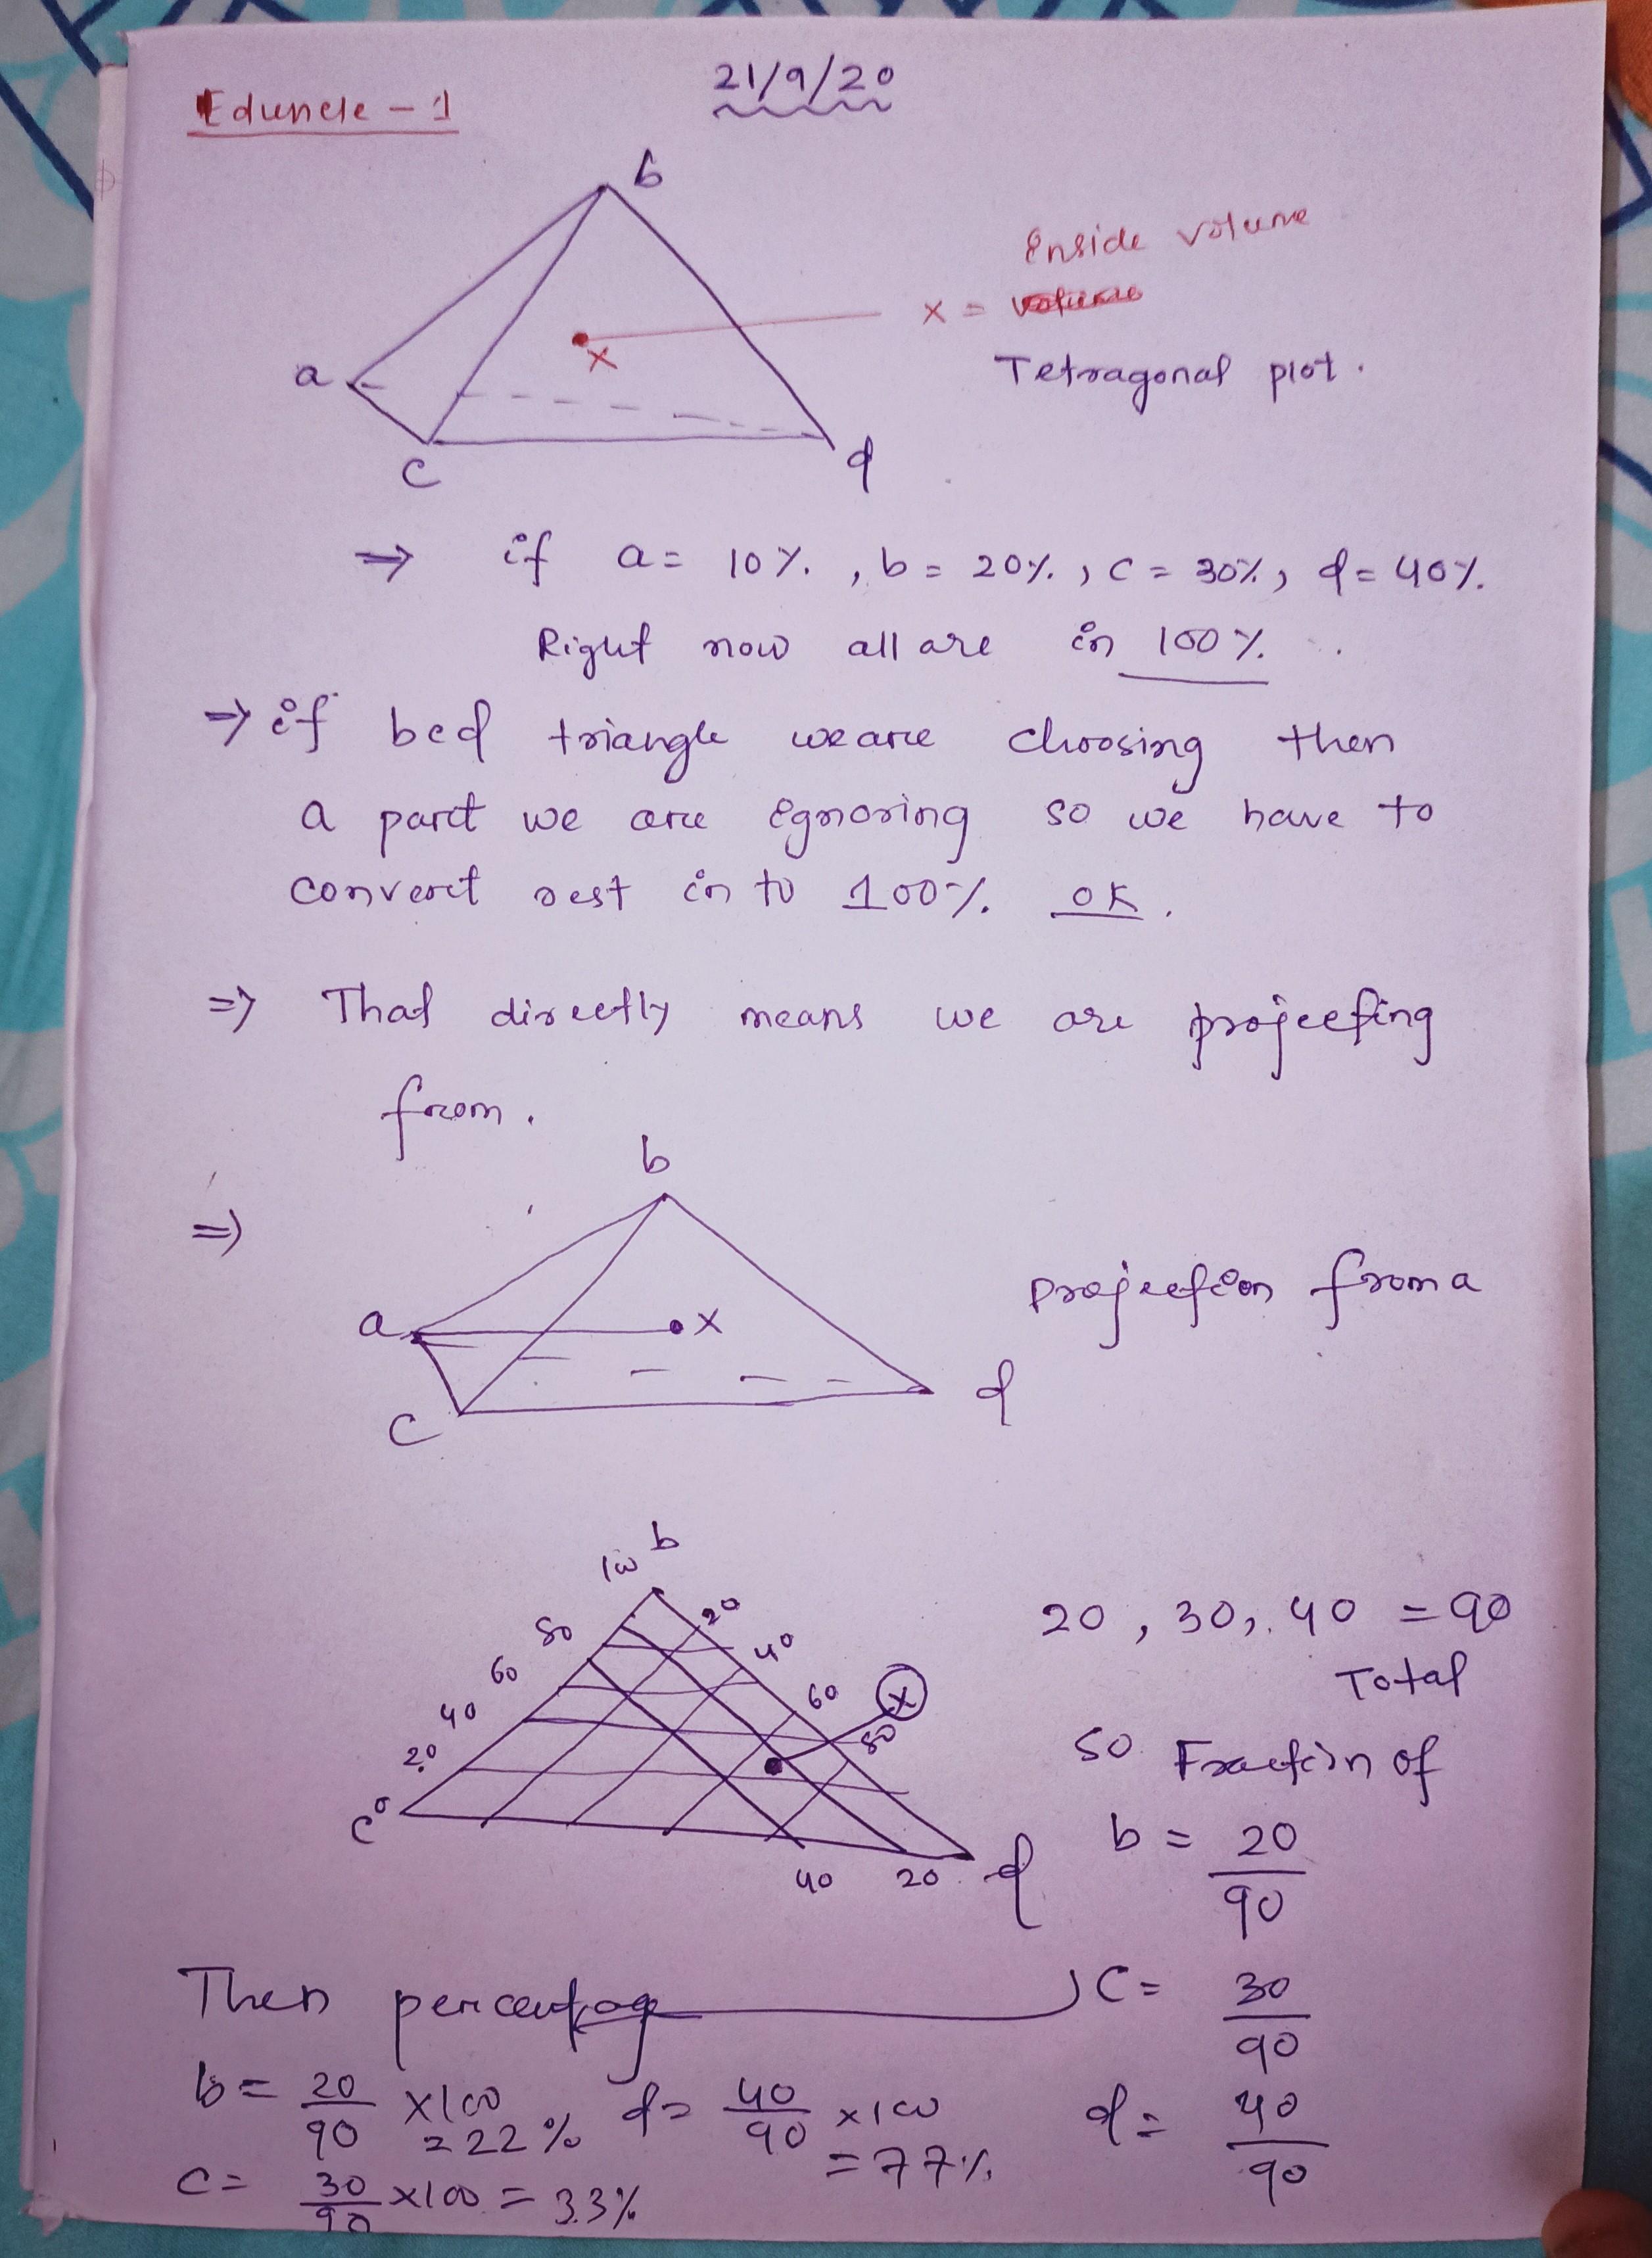 Eduncle - 1
21/9/20
b
Enside volume
x =
x
a
Tetragonal plot.
c
d
⇒ if a = 10%. , b = 20%. , c = 30%, d = 40%.
Right now all are in 100%.
⇒ if bcd triangle we are choosing then
a part we are Egnoring so we have to
convert rest in to 100%. OK.
⇒ That directly means we are projecting
from.
b
⇒
a
x
Projection from a
d
c
b
100
20
20, 30, 40 = 90
80
40
Total
60
60
x
40
80
20
so Fraction of
c 0
b = 20/90
40 20 d
Then percentage
c = 30/90
b = 20/90 x100 = 22%
d = 40/90 x100 = 77%
d = 40/90
c = 30/90 x100 = 33%